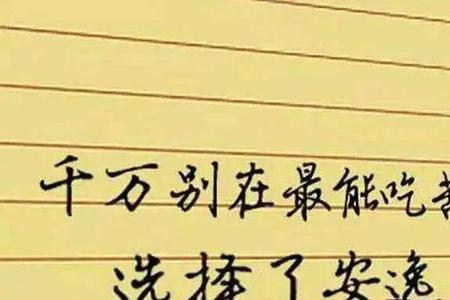 千万别在最能吃
选择了安逸